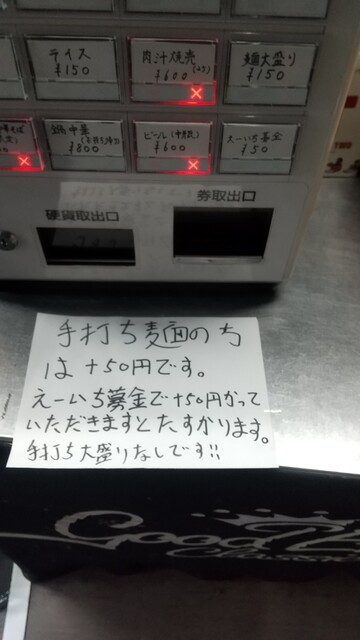 ライス
¥150
肉汁焼売
¥600
麺大盛り
¥150
¥800
ビール
¥600
えーいち募金
¥50
硬貨取出口
券取出口
手打ち麺のち
は+50円です。
えーいち募金で+50円かって
いただきますとたすかります。
手打ち大盛りなしです!!
Good
Classic